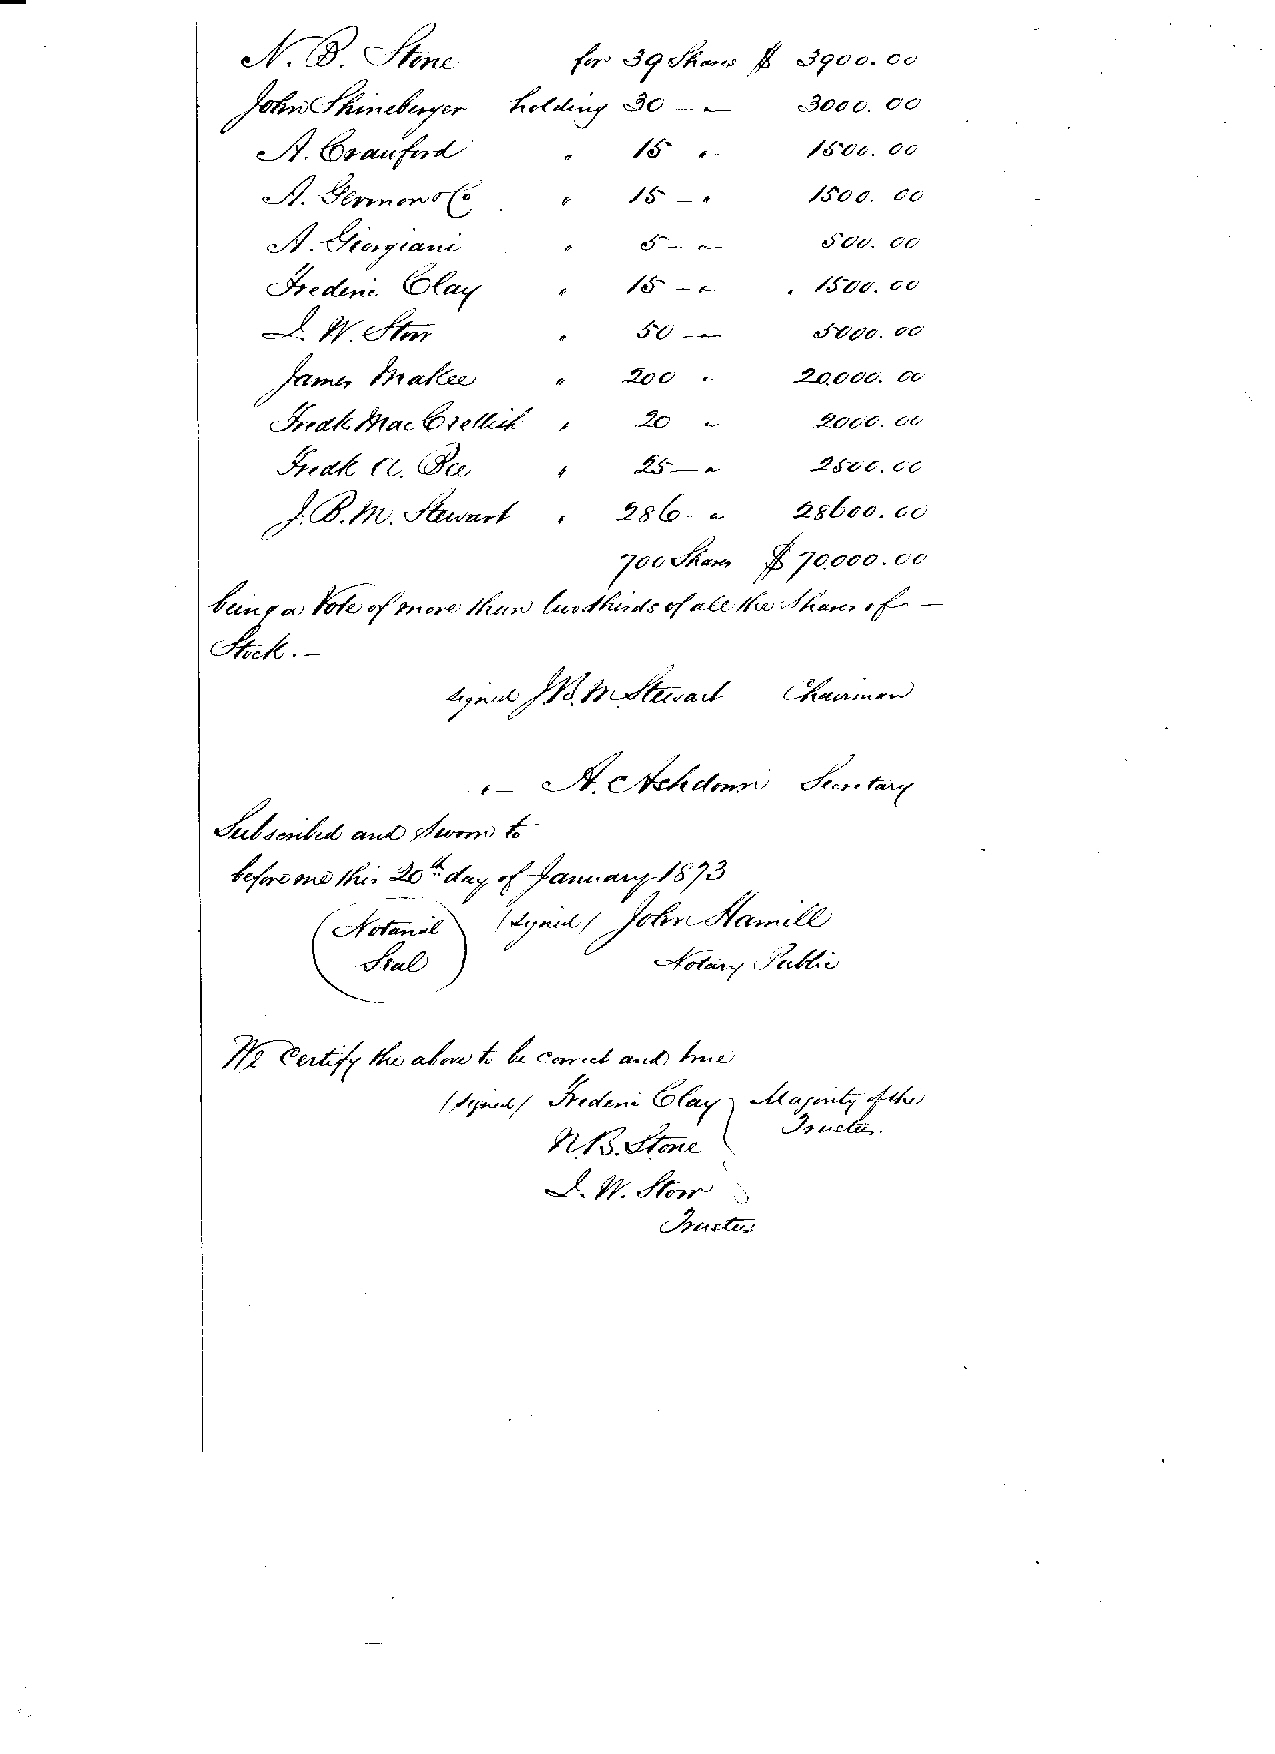 N. B. Stone for 39 Shares $ 3900.00
John Shineberger holding 30 — " — 3000.00
A. Crauford " 15 " 1500.00
A. Germon & Co " 15 — " 1500.00
A. Giorgiani " 5 — " — 500.00
Frederic Clay " 15 — " 1500.00
J. W. Stow " 50 — " — 5000.00
James Makee " 200 " 20,000.00
Fredk MacCrellish " 20 " 2000.00
Fredk A. Bee " 25 — " 2500.00
J. B. M. Stewart " 286 - " 28600.00
700 Shares $ 70,000.00
being a Vote of more than two thirds of all the Shares of —
Stock. —
signed J B. M Stewart Chairman
" — A. Ashdown Secretary
Subscribed and Sworn to
before me this 20th day of January 1873
(Notarial /signed/ John Hamill
Seal) Notary Public
We Certify the above to be correct and true
/signed/ Frederic Clay } Majority of the
Trustees.
N. B. Stone
J. W. Stow
Trustees